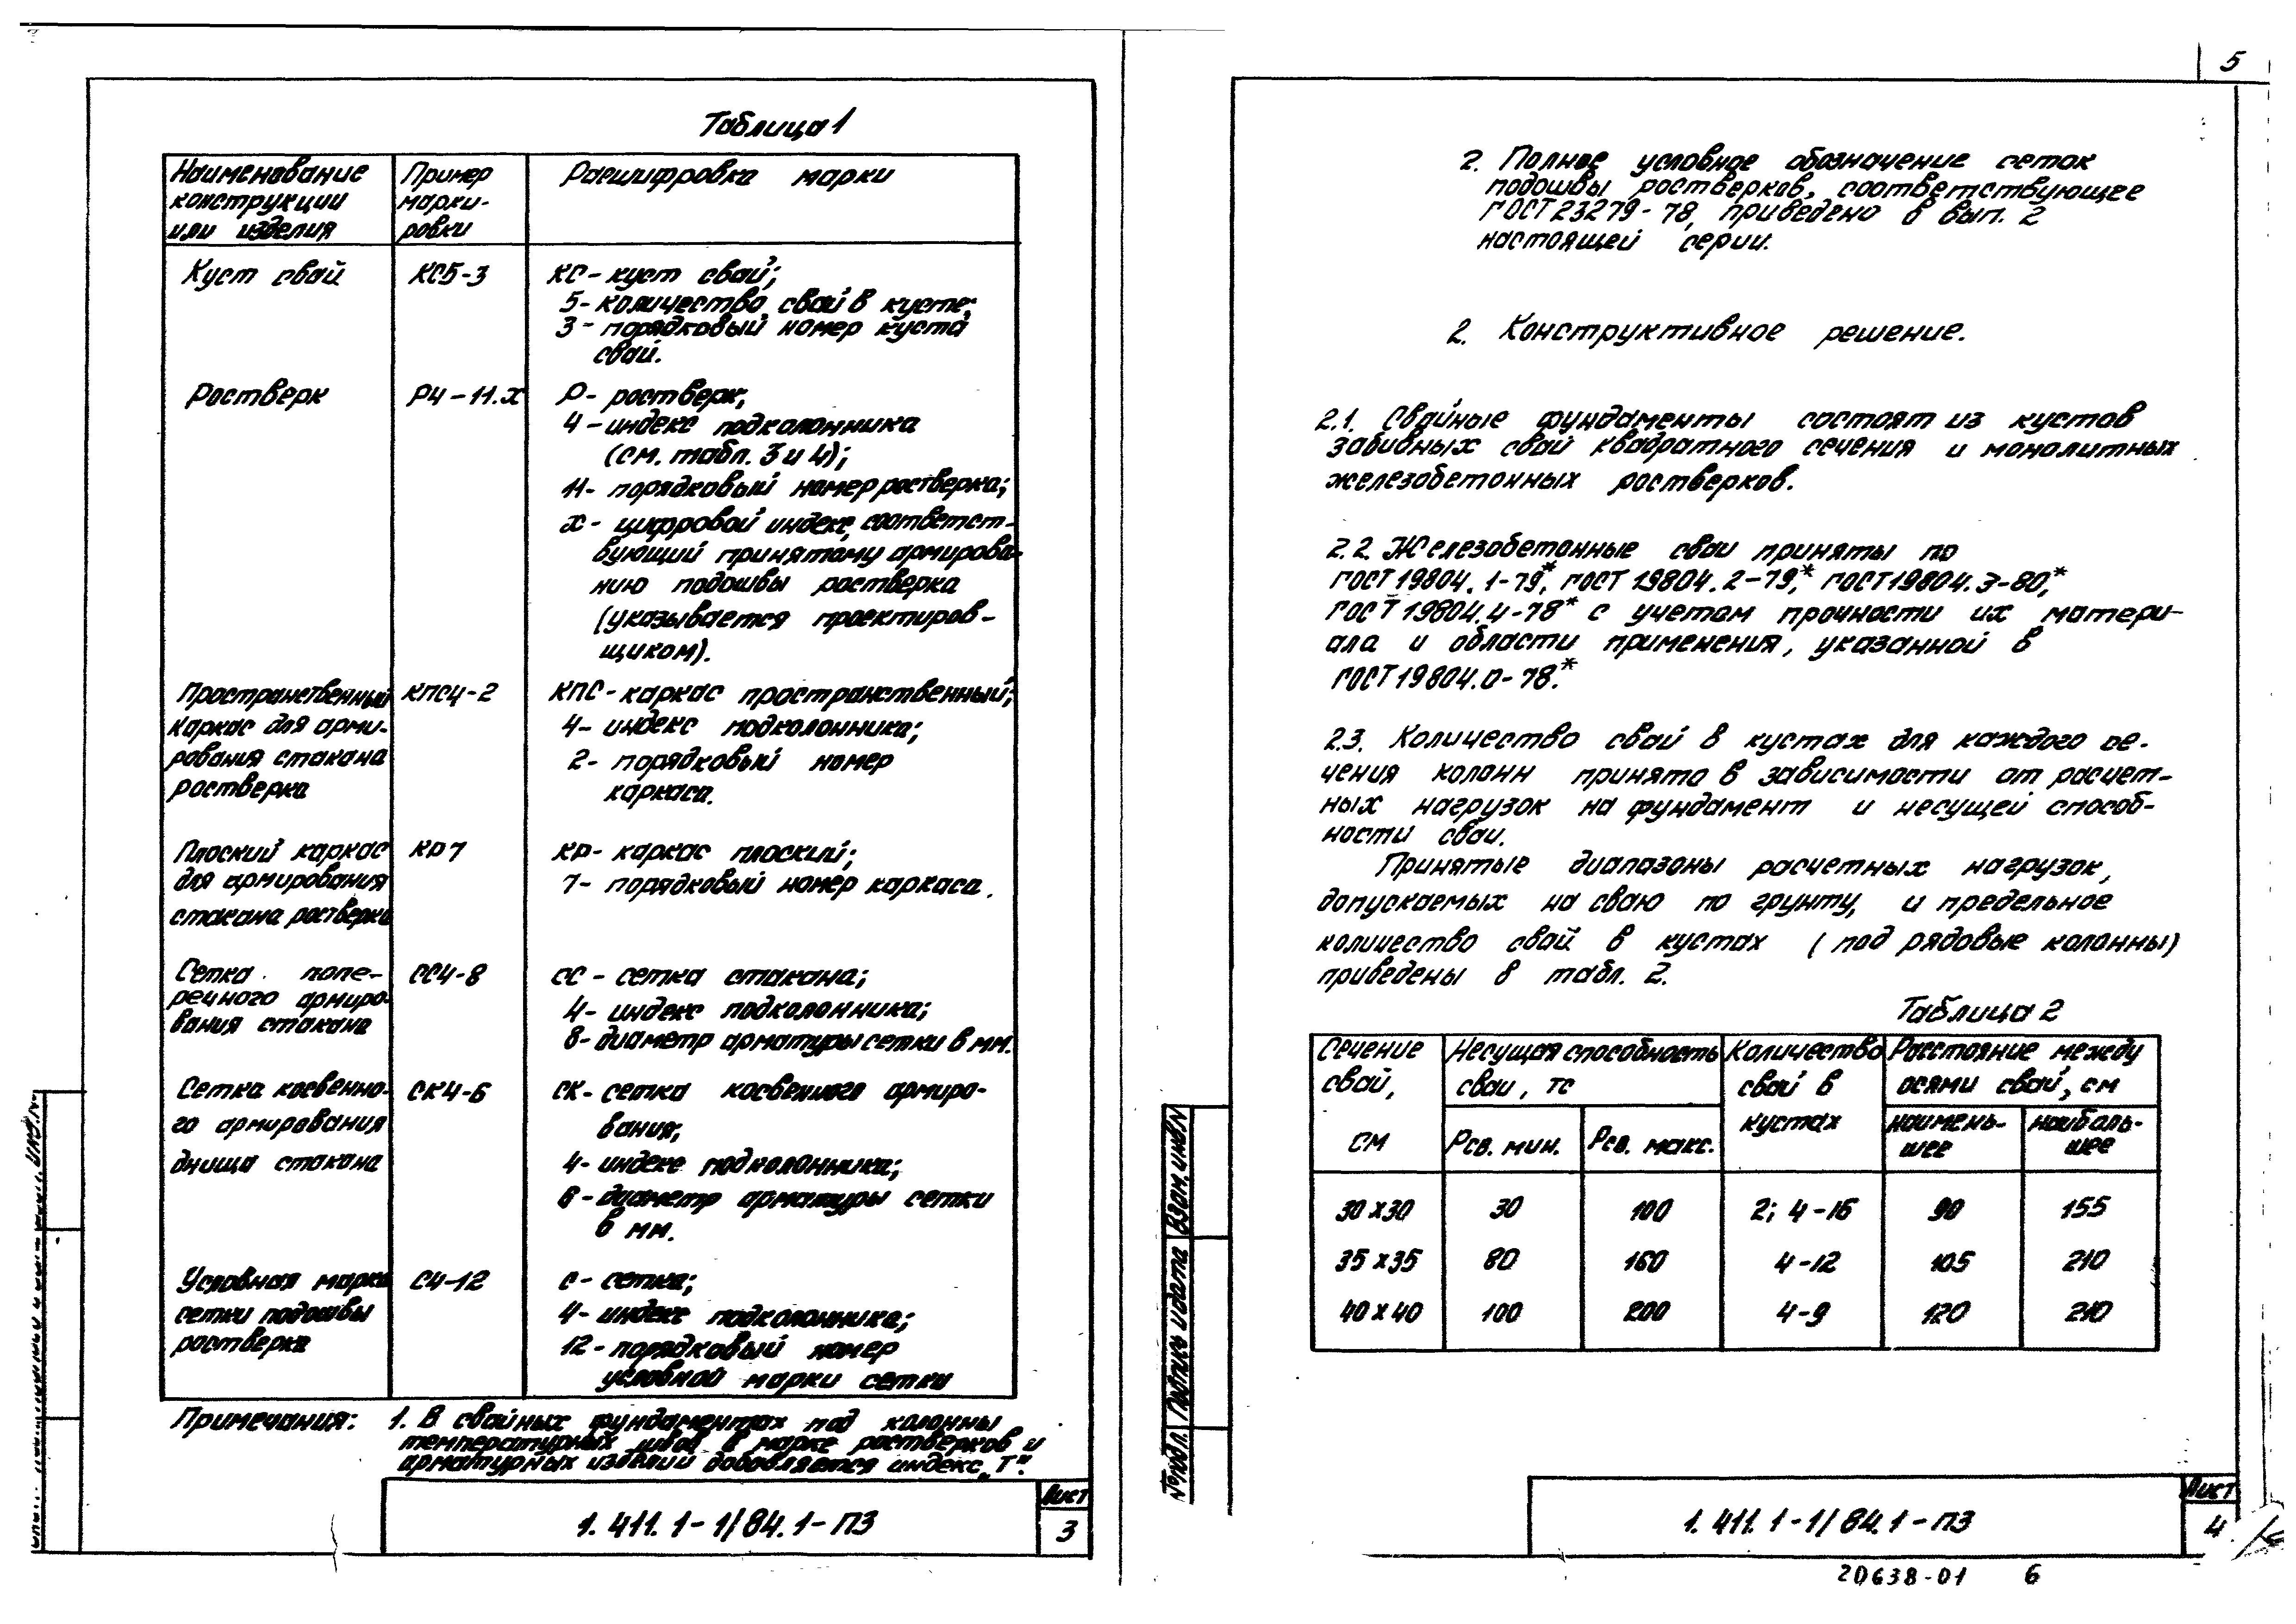 Таблица 1
Наименование конструкции или изделия
Пример марки-ровки
Расшифровка марки
Куст свай
КС5-3
КС - куст свай;
5 - количество свай в кусте;
3 - порядковый номер куста
свай.
Ростверк
Р4-11.х
Р - ростверк;
4 - индекс подколонника
(см. табл. 3 и 4);
11 - порядковый номер ростверка;
х - цифровой индекс, соответст-
вующий принятому армирова-
нию подошвы ростверка
(указывается проектиров-
щиком).
Пространственный
каркас для арми-
рования стакана
ростверка
КПС4-2
КПС - каркас пространственный;
4 - индекс подколонника;
2 - порядковый номер
каркаса.
Плоский каркас
для армирования
стакана ростверка
КР7
КР - каркас плоский;
7 - порядковый номер каркаса.
Сетка попе-
речного армиро-
вания стакана
СС4-8
СС - сетка стакана;
4 - индекс подколонника;
8 - диаметр арматуры сетки в мм.
Сетка косвенно-
го армирования
днища стакана
СК4-6
СК - сетка косвенного армиро-
вания;
4 - индекс подколонника;
6 - диаметр арматуры сетки
в мм.
Условная марка
сетки подошвы
ростверка
С4-12
С - сетка;
4 - индекс подколонника;
12 - порядковый номер
условной марки сетки
Примечания: 1. В свайных фундаментах под колонны
температурных швов в марке ростверков и
арматурных изделий добавляется индекс „Т".
1.411.1-1/84.1-ПЗ
Лист
3
5
2. Полное условное обозначение сеток
подошвы ростверков, соответствующее
ГОСТ 23279-78, приведено в вып. 2
настоящей серии.
2. Конструктивное решение.
2.1. Свайные фундаменты состоят из кустов
забивных свай квадратного сечения и монолитных
железобетонных ростверков.
2.2. Железобетонные сваи приняты по
ГОСТ 19804.1-79*, ГОСТ 19804.2-79*, ГОСТ 19804.3-80*,
ГОСТ 19804.4-78* с учетом прочности их матери-
ала и области применения, указанной в
ГОСТ 19804.0-78.*
2.3. Количество свай в кустах для каждого се-
чения колонн принято в зависимости от расчет-
ных нагрузок на фундамент и несущей способ-
ности сваи.
Принятые диапазоны расчетных нагрузок,
допускаемых на сваю по грунту, и предельное
количество свай в кустах (под рядовые колонны)
приведены в табл. 2.
Таблица 2
Сечение свай, см
Несущая способность сваи, тс
Количество свай в кустах
Расстояние между осями свай, см
Рсв. мин.
Рсв. макс.
наимень-шее
наиболь-шее
30х30 30 100 2; 4-16 90 155
35х35 80 160 4-12 105 210
40х40 100 200 4-9 120 210
№ подл. Подпись и дата Взам. инв. №
1.411.1-1/84.1-ПЗ
Лист
4
20638-01 6